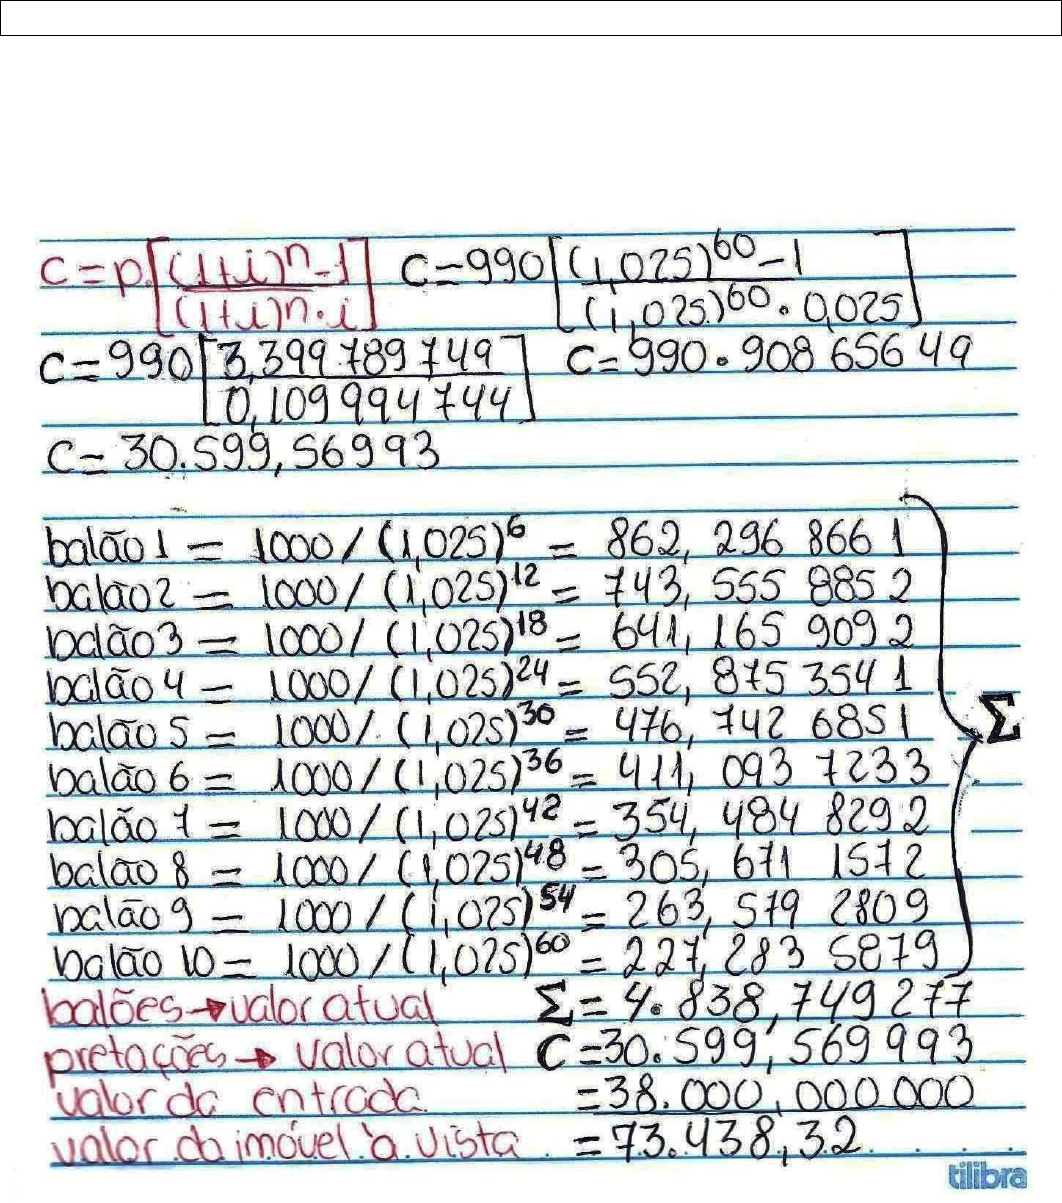 C = p.[(1+i)ⁿ-1 / (1+i)ⁿ.i] C = 990[(1,025)⁶⁰-1 / (1,025)⁶⁰.0,025]
C = 990[3,399 789 749 / 0,109 994 744] C = 990.908 656 49
C = 30.599,56993
balão 1 = 1000/(1,025)⁶ = 862, 296 866 1
balão 2 = 1000/(1,025)¹² = 743, 555 885 2
balão 3 = 1000/(1,025)¹⁸ = 641, 165 909 2
balão 4 = 1000/(1,025)²⁴ = 552, 875 354 1
balão 5 = 1000/(1,025)³⁰ = 476, 742 6851
balão 6 = 1000/(1,025)³⁶ = 411, 093 7233
balão 7 = 1000/(1,025)⁴² = 354, 484 8292
balão 8 = 1000/(1,025)⁴⁸ = 305, 671 1572
balão 9 = 1000/(1,025)⁵⁴ = 263, 579 2809
balão 10 = 1000/(1,025)⁶⁰ = 227, 283 5879
Σ
balões → valor atual Σ = 4.838,749277
pretações → valor atual C = 30.599,569993
valor da entrada = 38.000,000 000
valor do imóvel à vista = 73.438,32
tilibra